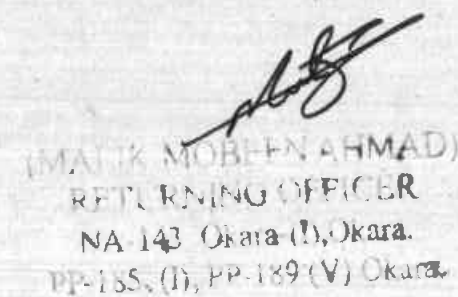 (MALIK MOBEEN AHMAD)
RETURNING OFFICER
NA-143 Okara (I), Okara.
PP-185, (I), PP-189 (V) Okara.